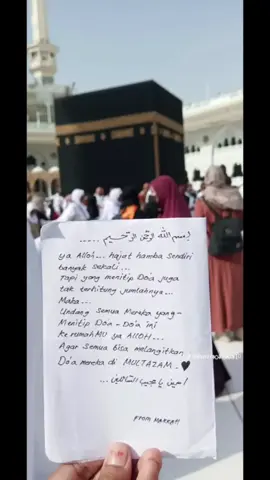 بسم الله الرحمن الرحيم .....
Ya Alloh... hajat hamba sendiri
banyak sekali...
Tapi yang menitip Do'a juga
tak terhitung jumlahnya...
Maka...
Undang semua Mereka yang-
Menitip Doa - Do'a ini
kerumahMU ya ALLOH...
Agar semua bisa melangitkan
Do'a mereka di MULTAZAM.. ♥
آمين يا مجيب السائلين ...
FROM MAKKAH